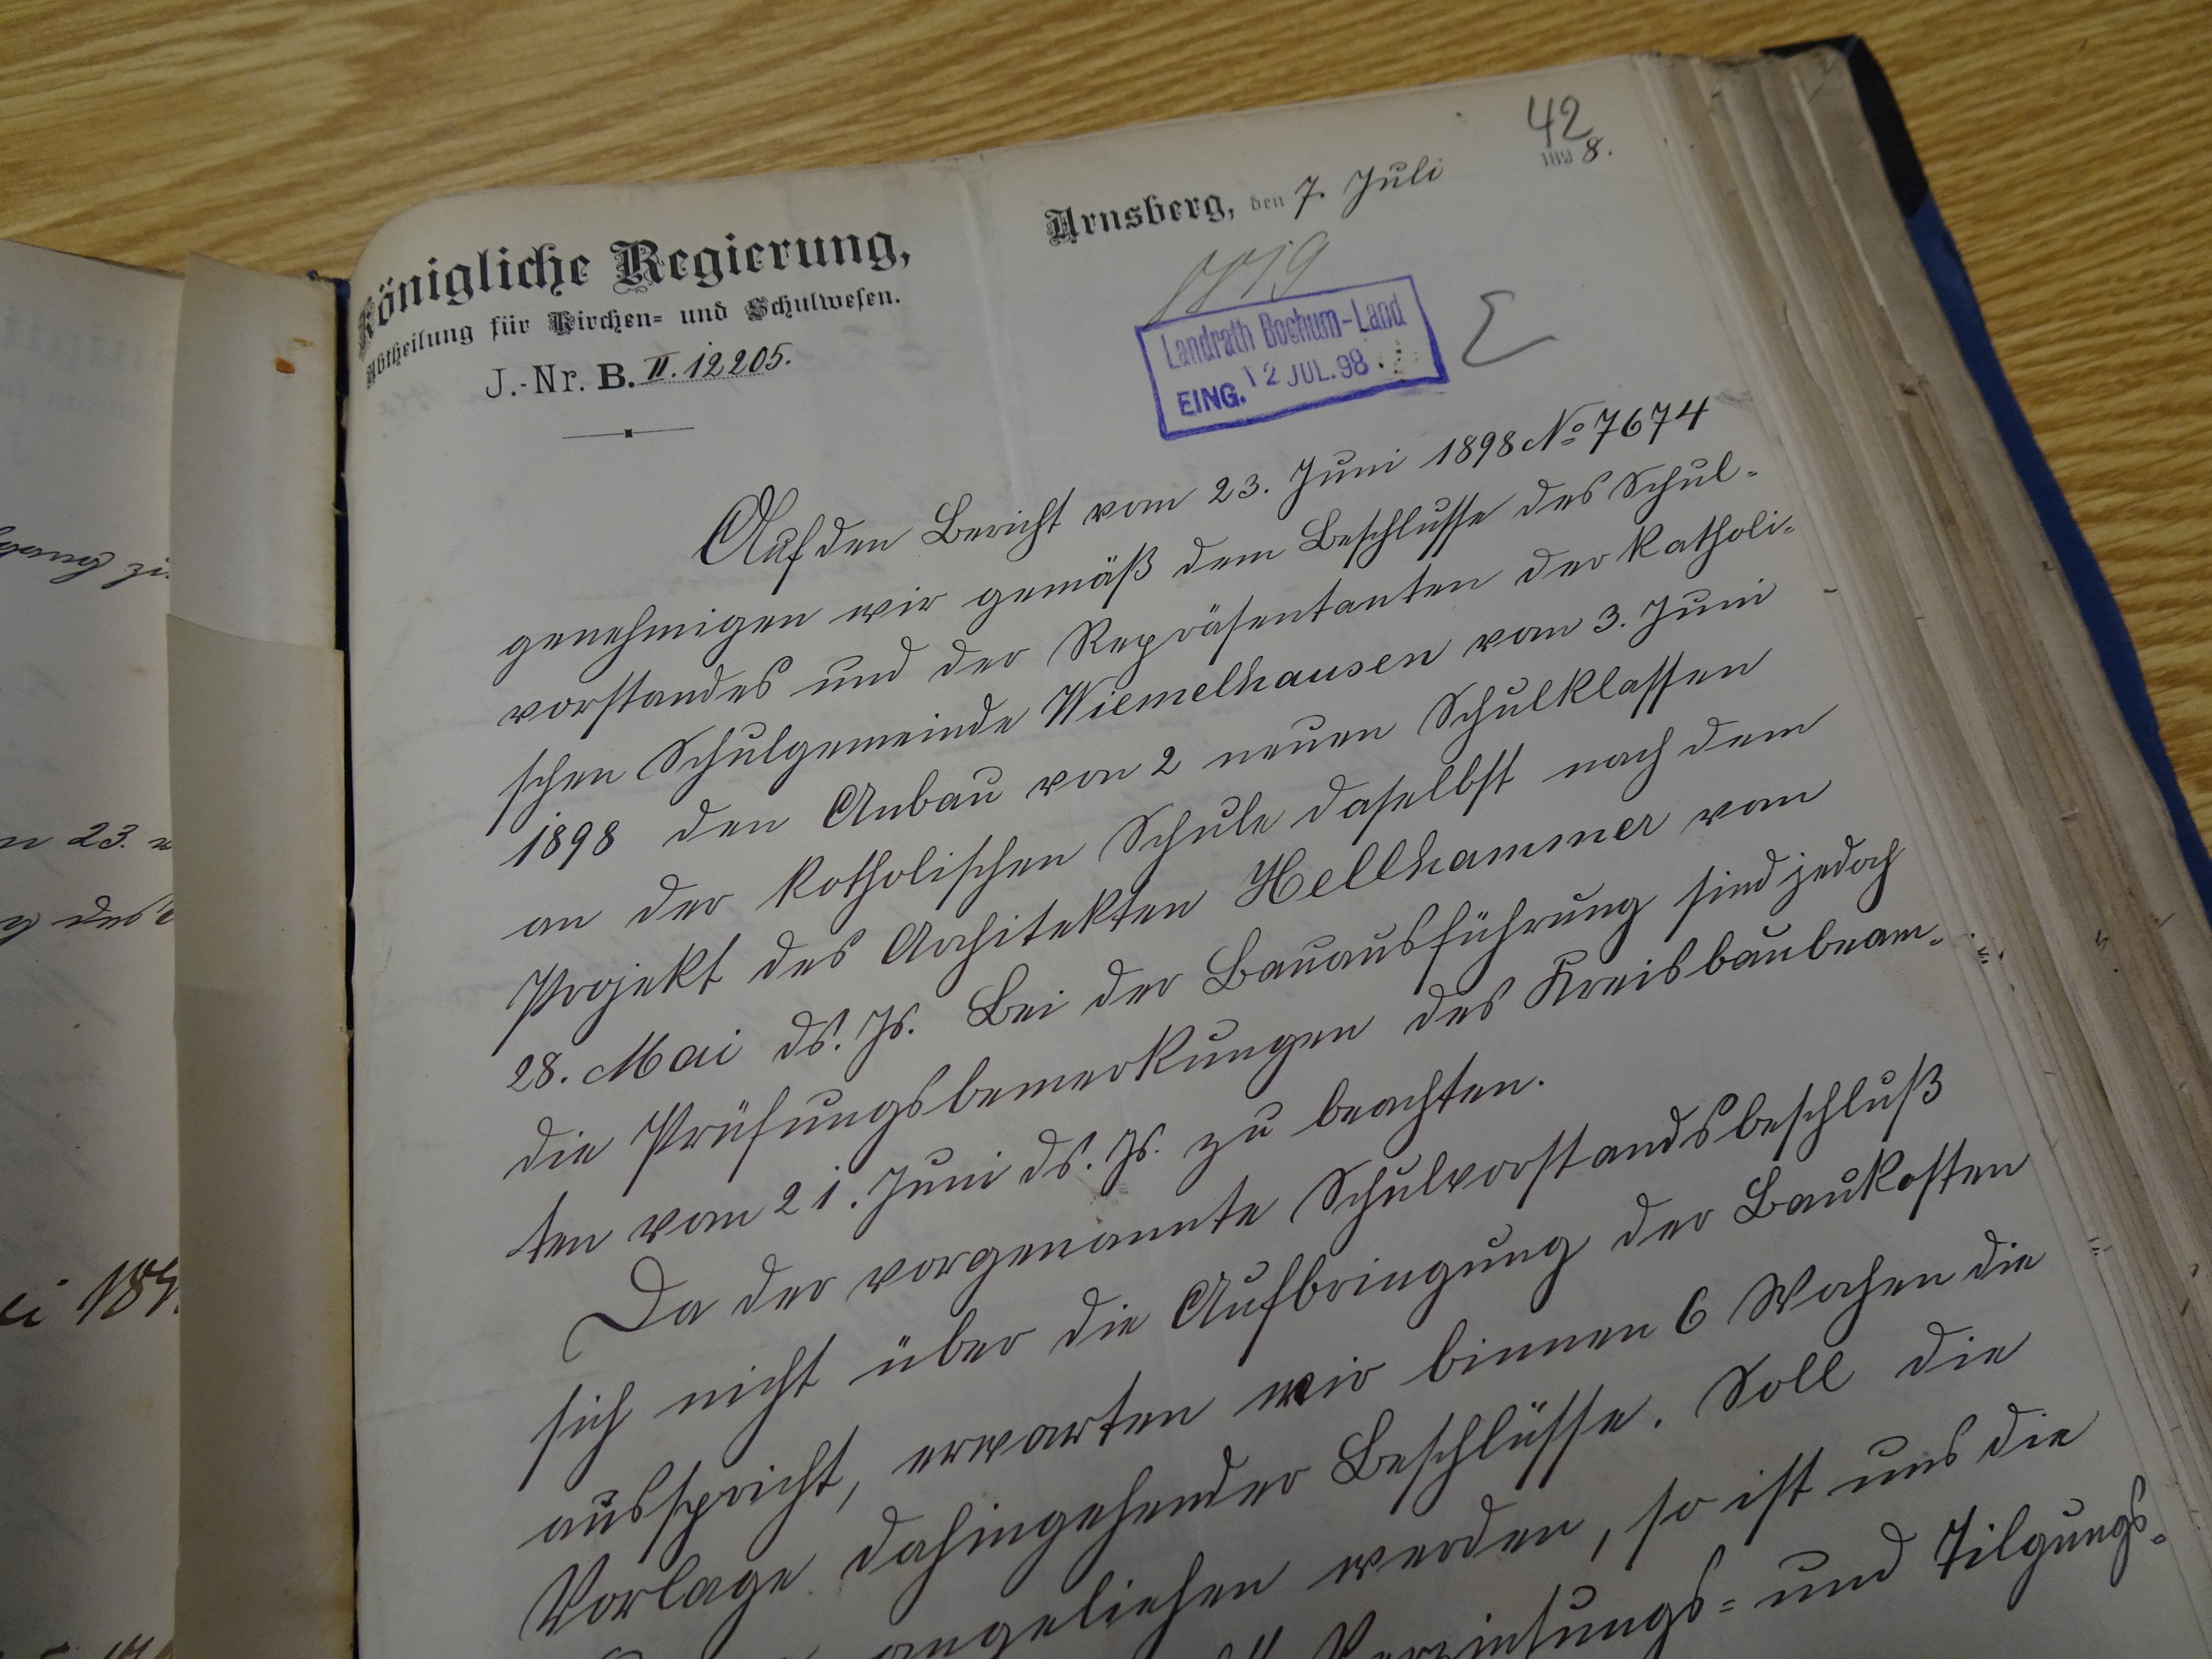 42
Königliche Regierung,
Abtheilung für Kirchen= und Schulwesen.
J.-Nr. B. II. 12205.
Arnsberg, den 7. Juli 1898.
Landrath Bochum-Land
EING. 12 JUL. 98
Auf den Bericht vom 23. Juni 1898 No 7674
genehmigen wir gemäß dem Beschlusse des Schul-
vorstandes und der Repräsentanten der katholi-
schen Schulgemeinde Wiemelhausen vom 3. Juni
1898 den Anbau von 2 neuen Schulklassen
an der katholischen Schule daselbst nach dem
Projekt des Architekten Hellhammer vom
28. Mai ds. Js. Bei der Bauausführung sind jedoch
die Prüfungsbemerkungen des Kreisbaubeam-
ten vom 21. Juni ds. Js. zu beachten.
Da der vorgenannte Schulvorstandsbeschluß
sich nicht über die Aufbringung der Baukosten
ausspricht, erwarten wir binnen 6 Wochen die
Vorlage dahingehender Beschlüsse. Soll die
angeliehen werden, so ist uns die
Verzinsungs= und Tilgungs=